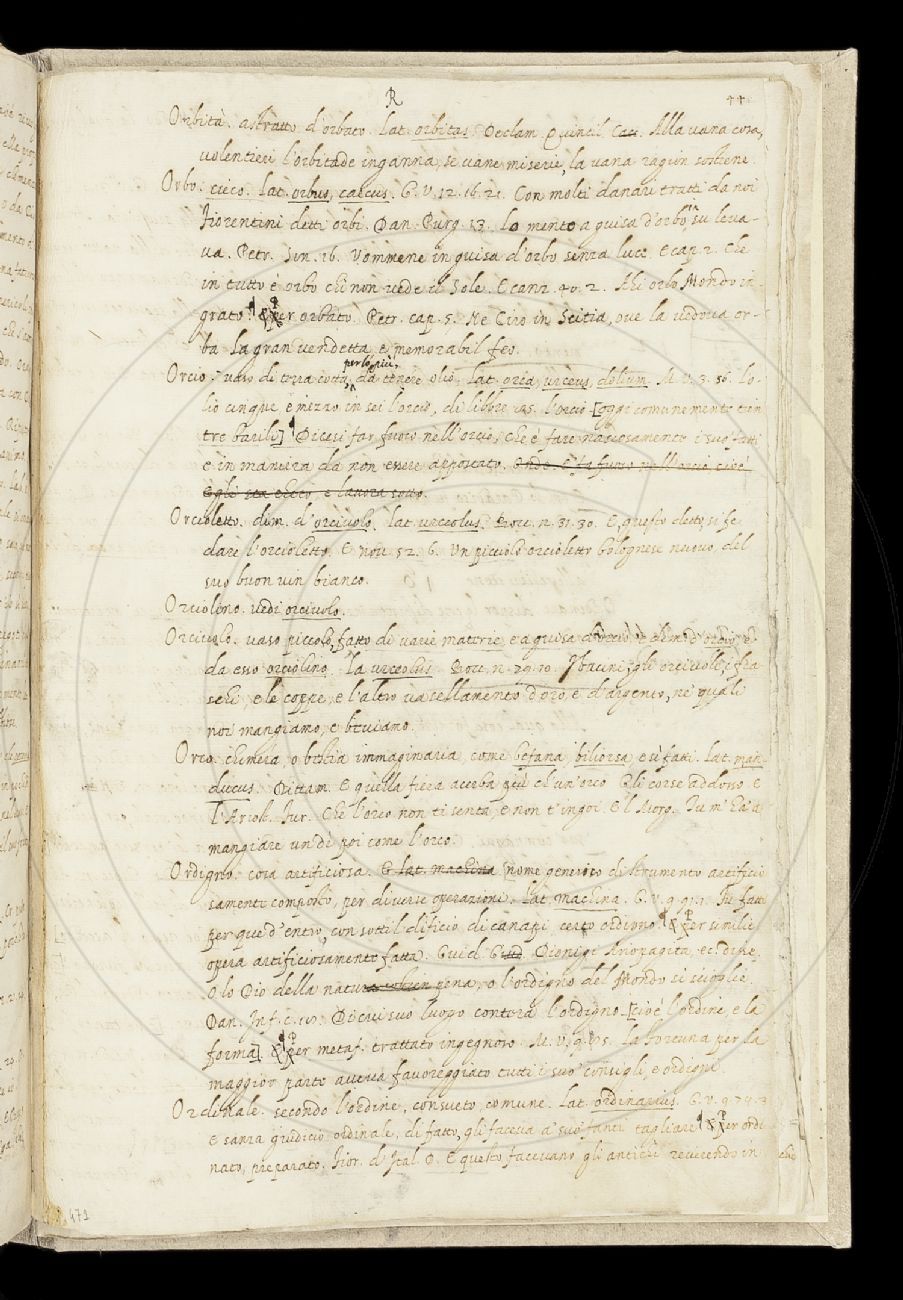 R 44
Orbità. astratto d'orbato. Lat. orbitas. Declam. Quintil. Alla vana cosa,
volentieri l'orbitade inganna, se vane miserie, la vana ragion sostene.
Orbo. cieco. lat. orbus, caecus. G. V. 12. 16. 21. Con molti danari tratti da noi
Fiorentini detti orbi. Dan. Purg. 13. Lo mento a guisa d'orbo in su leva-
va. Petr. Son. 16. Vommene in guisa d'orbo senza luce. E cap. 2. Che
in tutto è orbo chi non vede il Sole. E canz. 40. 2. Ahi orbo Mondo in-
grato. ¶ Per orbato. Petr. cap. 5. Ne Ciro in Scitia, ove la vedova or-
ba La gran vendetta, e memorabil feo.
Orcio. vaso di terra cotta, per lo più, da tenere olio. Lat. orca, urceus, dolium. M. V. 3. 56. Lo-
lio cinque e mezzo in sei l'orcio, di libbre 85. l'orcio [oggi comunemente tien
tre barili] ¶ Dicesi far fuoco nell'orcio, che è fare nascosamente i suo' fatti
e in maniera da non essere appostato. Onde E' fa fuoco nell'orcio cioè
Egli sta cheto e lavora sotto.
Orcioletto. dim. d'orciuolo. lat. urceolus. Bocc. n. 31. 30. E, questo detto, si fe
dare l'orcioletto. E nov. 52. 6. Un piccolo orcioletto bolognese nuovo, del
suo buon vin bianco.
Orciolino. vedi orciuolo.
Orciuolo. vaso piccolo, fatto di varie materie, e a guisa d'orcio
da esso orciolino. La. urceolus. Bocc. n. 79. 10. I bacini, gli orciuoli, i fia-
schi, e le coppe, e l'altro vasellamento d'oro, e d'argento, ne' quali
noi mangiamo, e beviamo.
Orco. chimera, o bestia immaginaria, come befana, biliorsa e sì fatti. Lat. man-
ducus. Dittam. E quella fiera acerba più ch'un'orco Gli corse addosso, e
l'Ariost. Fur. Che l'orco non ti senta, e non t'ingoi. E l Morg. Tu m'hai a
mangiare un dì poi come l'orco.
Ordigno. cosa artificiosa. E lat. machina [nome generico di strumento artificio
samente composto, per diverse operazioni. Lat. machina. G. V. 9. 91. 1. Fu fatto
per que' d'entro, con sottil dificio, di canapi certo ordigno. ¶ Per simile
opera artificiosamente fatta. Guid. G. Dionigi Ariopagita, ec. disse,
O lo Dio della natura pena, o l'ordigno del Mondo si scioglie.
Dan. Inf. c. 18. Di cui suo luogo conterà l'ordigno. [cioè l'ordine, e la
forma]. ¶ Per metaf. trattato ingegnoso. M. V. 9. 75. La Fortuna per la
maggior parte aveva favoreggiato tutti i suo' consigli, e ordigni.
Ordinale. secondo l'ordine, consueto, comune. Lat. ordinarius. G. V. 9. 74. 3
e sanza giudicio ordinale, di fatto, gli faceva a' suo' fanti tagliare. ¶ Per ordi
nato, preparato. Fior. d'Ital. D. E questo facevano gli antichi reverendo in
471